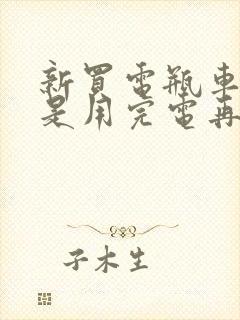 新買電瓶車
是用完電再
子木生